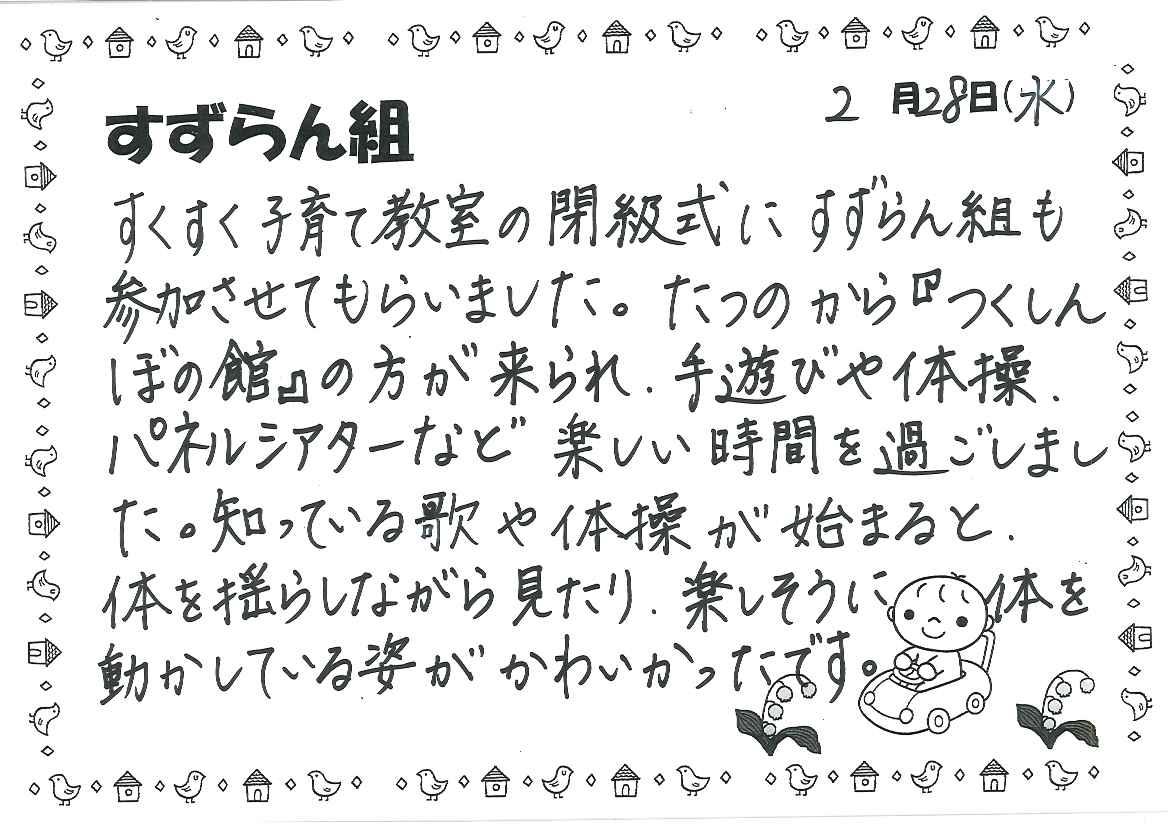 2月28日(水)
すずらん組
すくすく子育て教室の閉級式にすずらん組も
参加させてもらいました。たつのから『つくしん
ぼの館』の方が来られ、手遊びや体操、
パネルシアターなど楽しい時間を過ごしまし
た。知っている歌や体操が始まると、
体を揺らしながら見たり、楽しそうに体を
動かしている姿がかわいかったです。